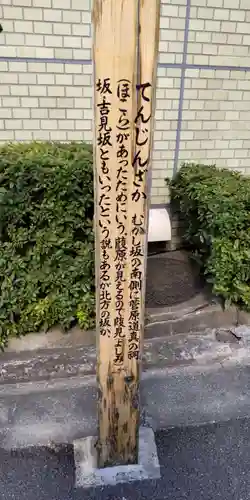 てんじんざか むかし坂の南側に菅原道真の祠
(ほこら)があったためにいう。陵原が見えるので陵見(よしみ)
坂・吉見坂ともいったという説もあるが北方の坂か。